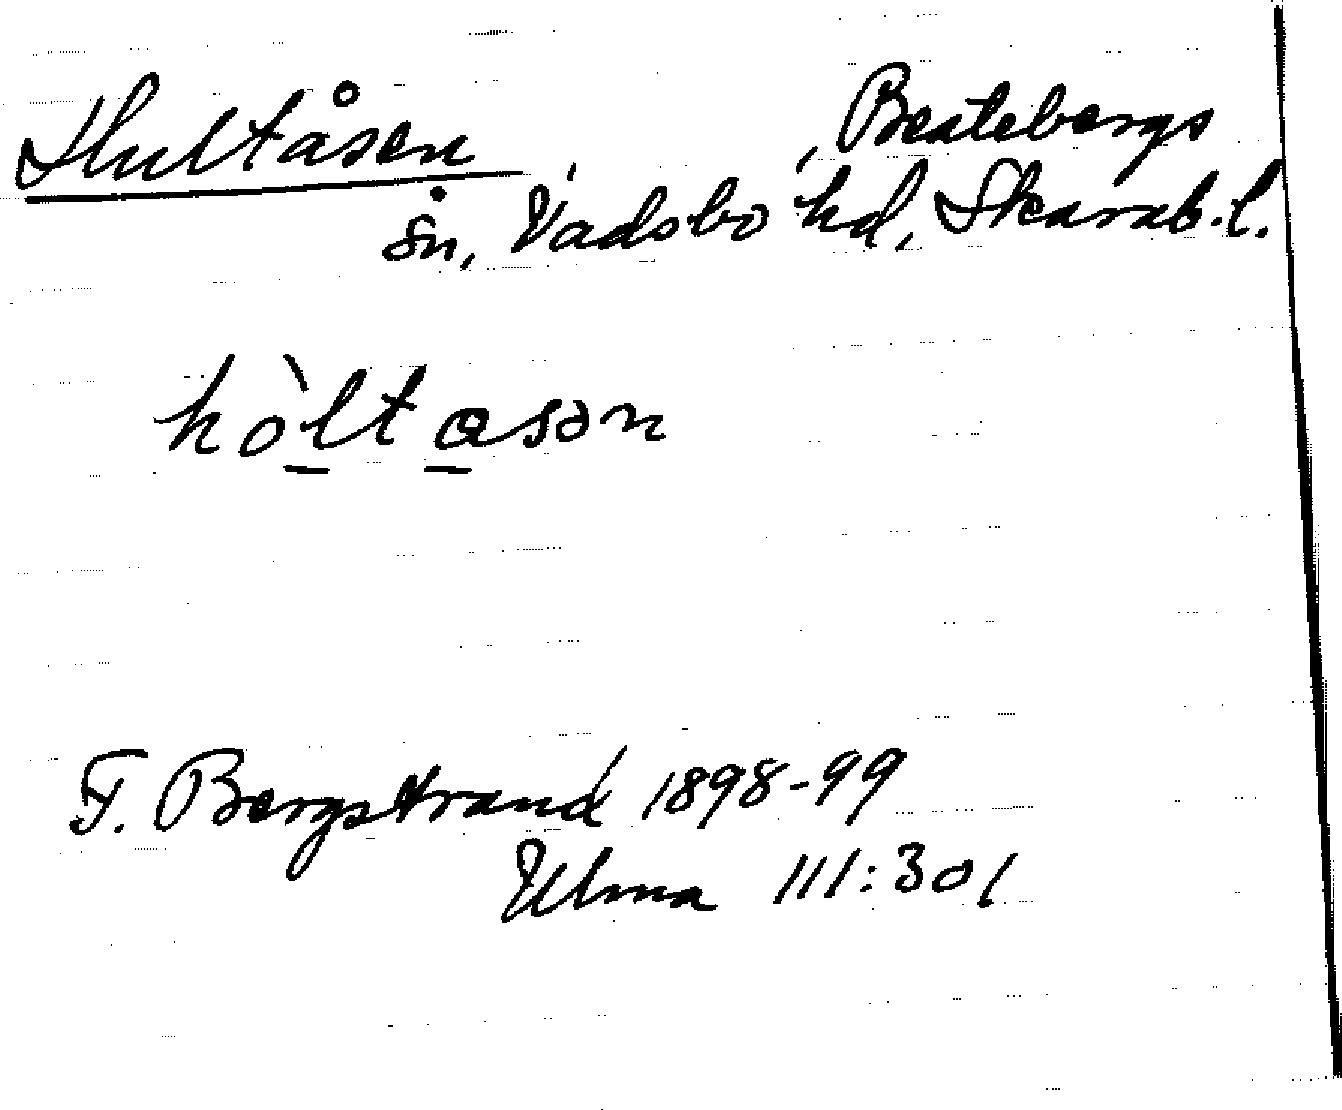 Hultåsen, Beatebergs
sn, Vadsbo hd, Skarab.l.
hòltasən
F. Bergstrand 1898-99
Ulma 111:301